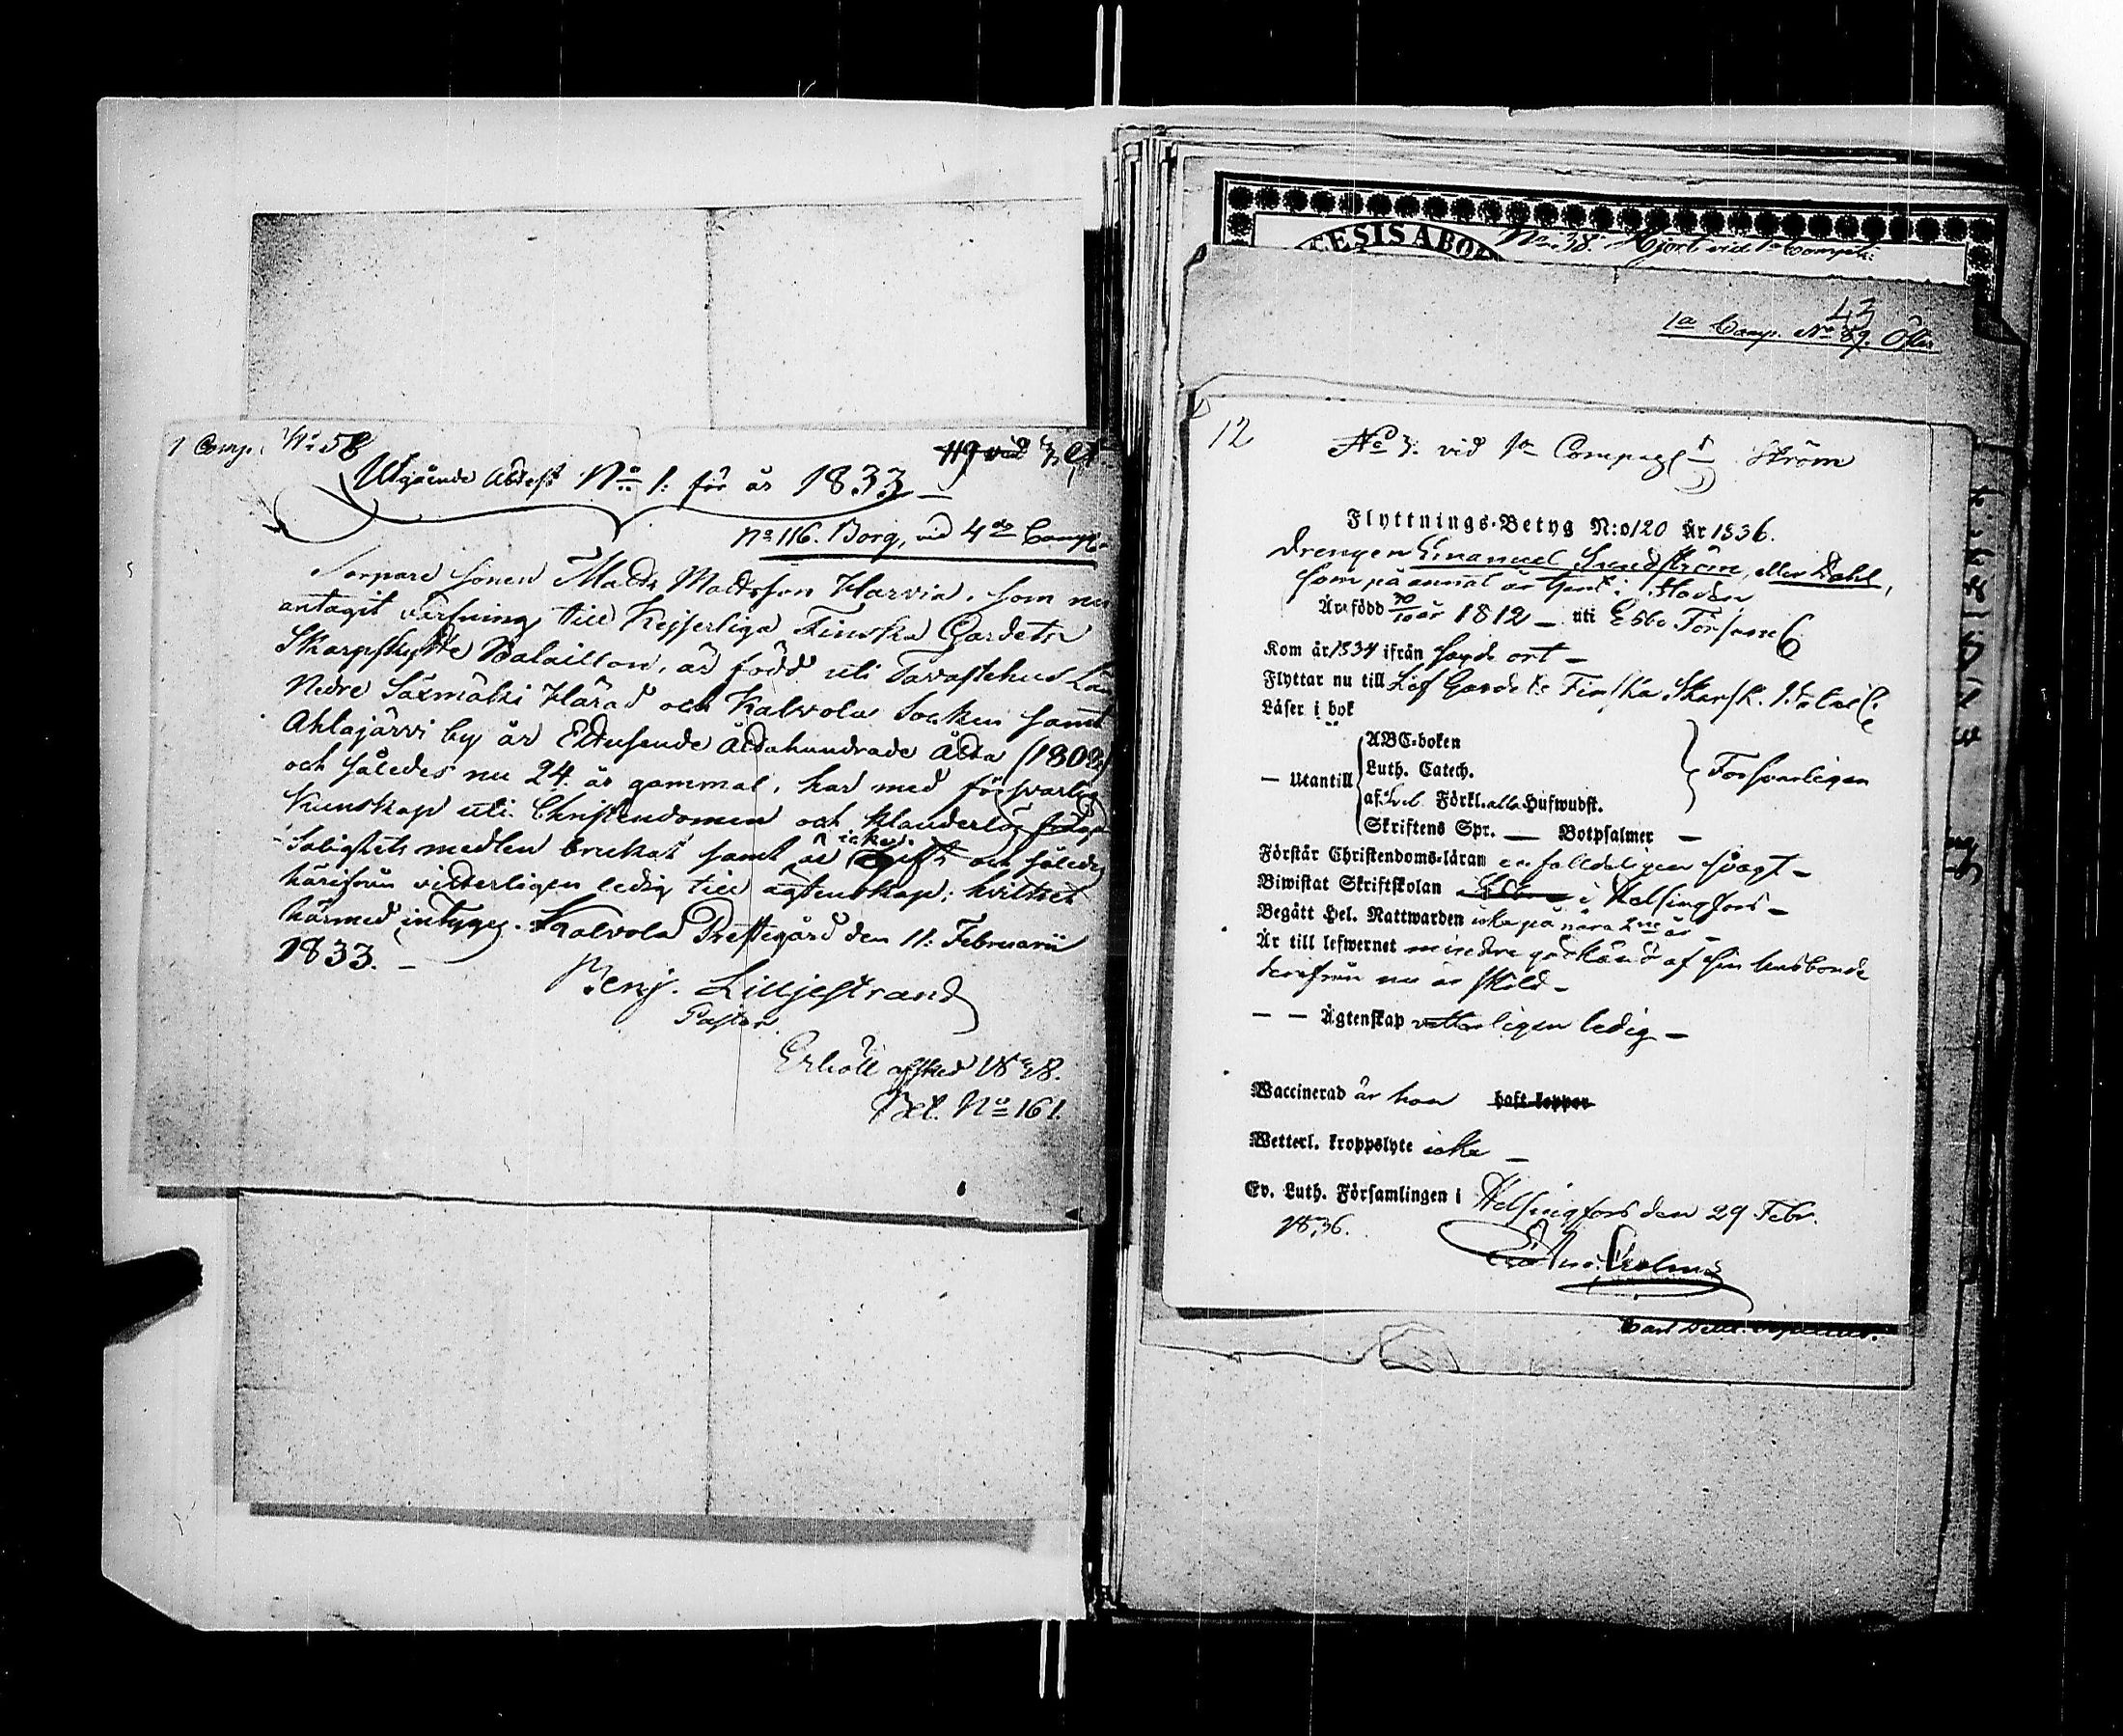 1 Comp. No 58
119 vid
Utgående Attest No 1: för år 1833
No 116. Borg, vid 4de Comp.
Torpare sonen Matts Mattsson Harvia, som nu
antagit värfning till Kejserliga Finska Gardets
Skarpskytte Bataillon, är född uti Tavastehus Län
Nedre Säxmäki Härad och Kalvola Socken samt
Ahlajärvi by år Ettusende Åttahundrade Åtta (1808)
och således nu 24 år gammal, har med försvarlig
Kunskap uti Christendomen och klanderlös frägd
Salighets medlen brukat samt är icke gift och således
härifrån vitterligen ledig till ägtenskap; hvilket
härmed intygas. Kalvola Prestegård den 11: Februarii
1833. –
Benj. Lilljestrand
Pastor
Erhöll afsked 1838.
Bet. No 161.
CESIS ABO
No 38. Hjort vid 1a Comp.
43
1a Comp. No 89. Öster
12
No 3. vid 1a Compag. Ström
Flyttnings-Betyg N:o 120 År 1836.
Drengen Emanuel Sundström, eller Dahl,
som på annat är känd i Staden
År född 30/10 år 1812 – uti Esbo Förs
Kom år 1834 ifrån sagde ort –
Flyttar nu till Lif Gardets Finska Skarpsk. Batail
Läser i bok
ABC-boken
– Utantill Luth. Catech. Försvarligen
af Förkl. alla Hufwudst.
Skriftens Spr. — Botpsalmer –
Förstår Christendoms-läran enfalldeligen svagt –
Biwistat Skriftskolan i Helsingfors –
Begått Hel. Nattwarden icke på nära 2ne år –
Är till lefwernet mindre godkänd af sin husbonde
derifrån nu är skild –
– – Ägtenskap vitterligen ledig –
Waccinerad är han haft koppor
Wetterl. kroppslyte icke –
Ev. Luth. Församlingen i Helsingfors den 29 Febr.
1836.
Carl